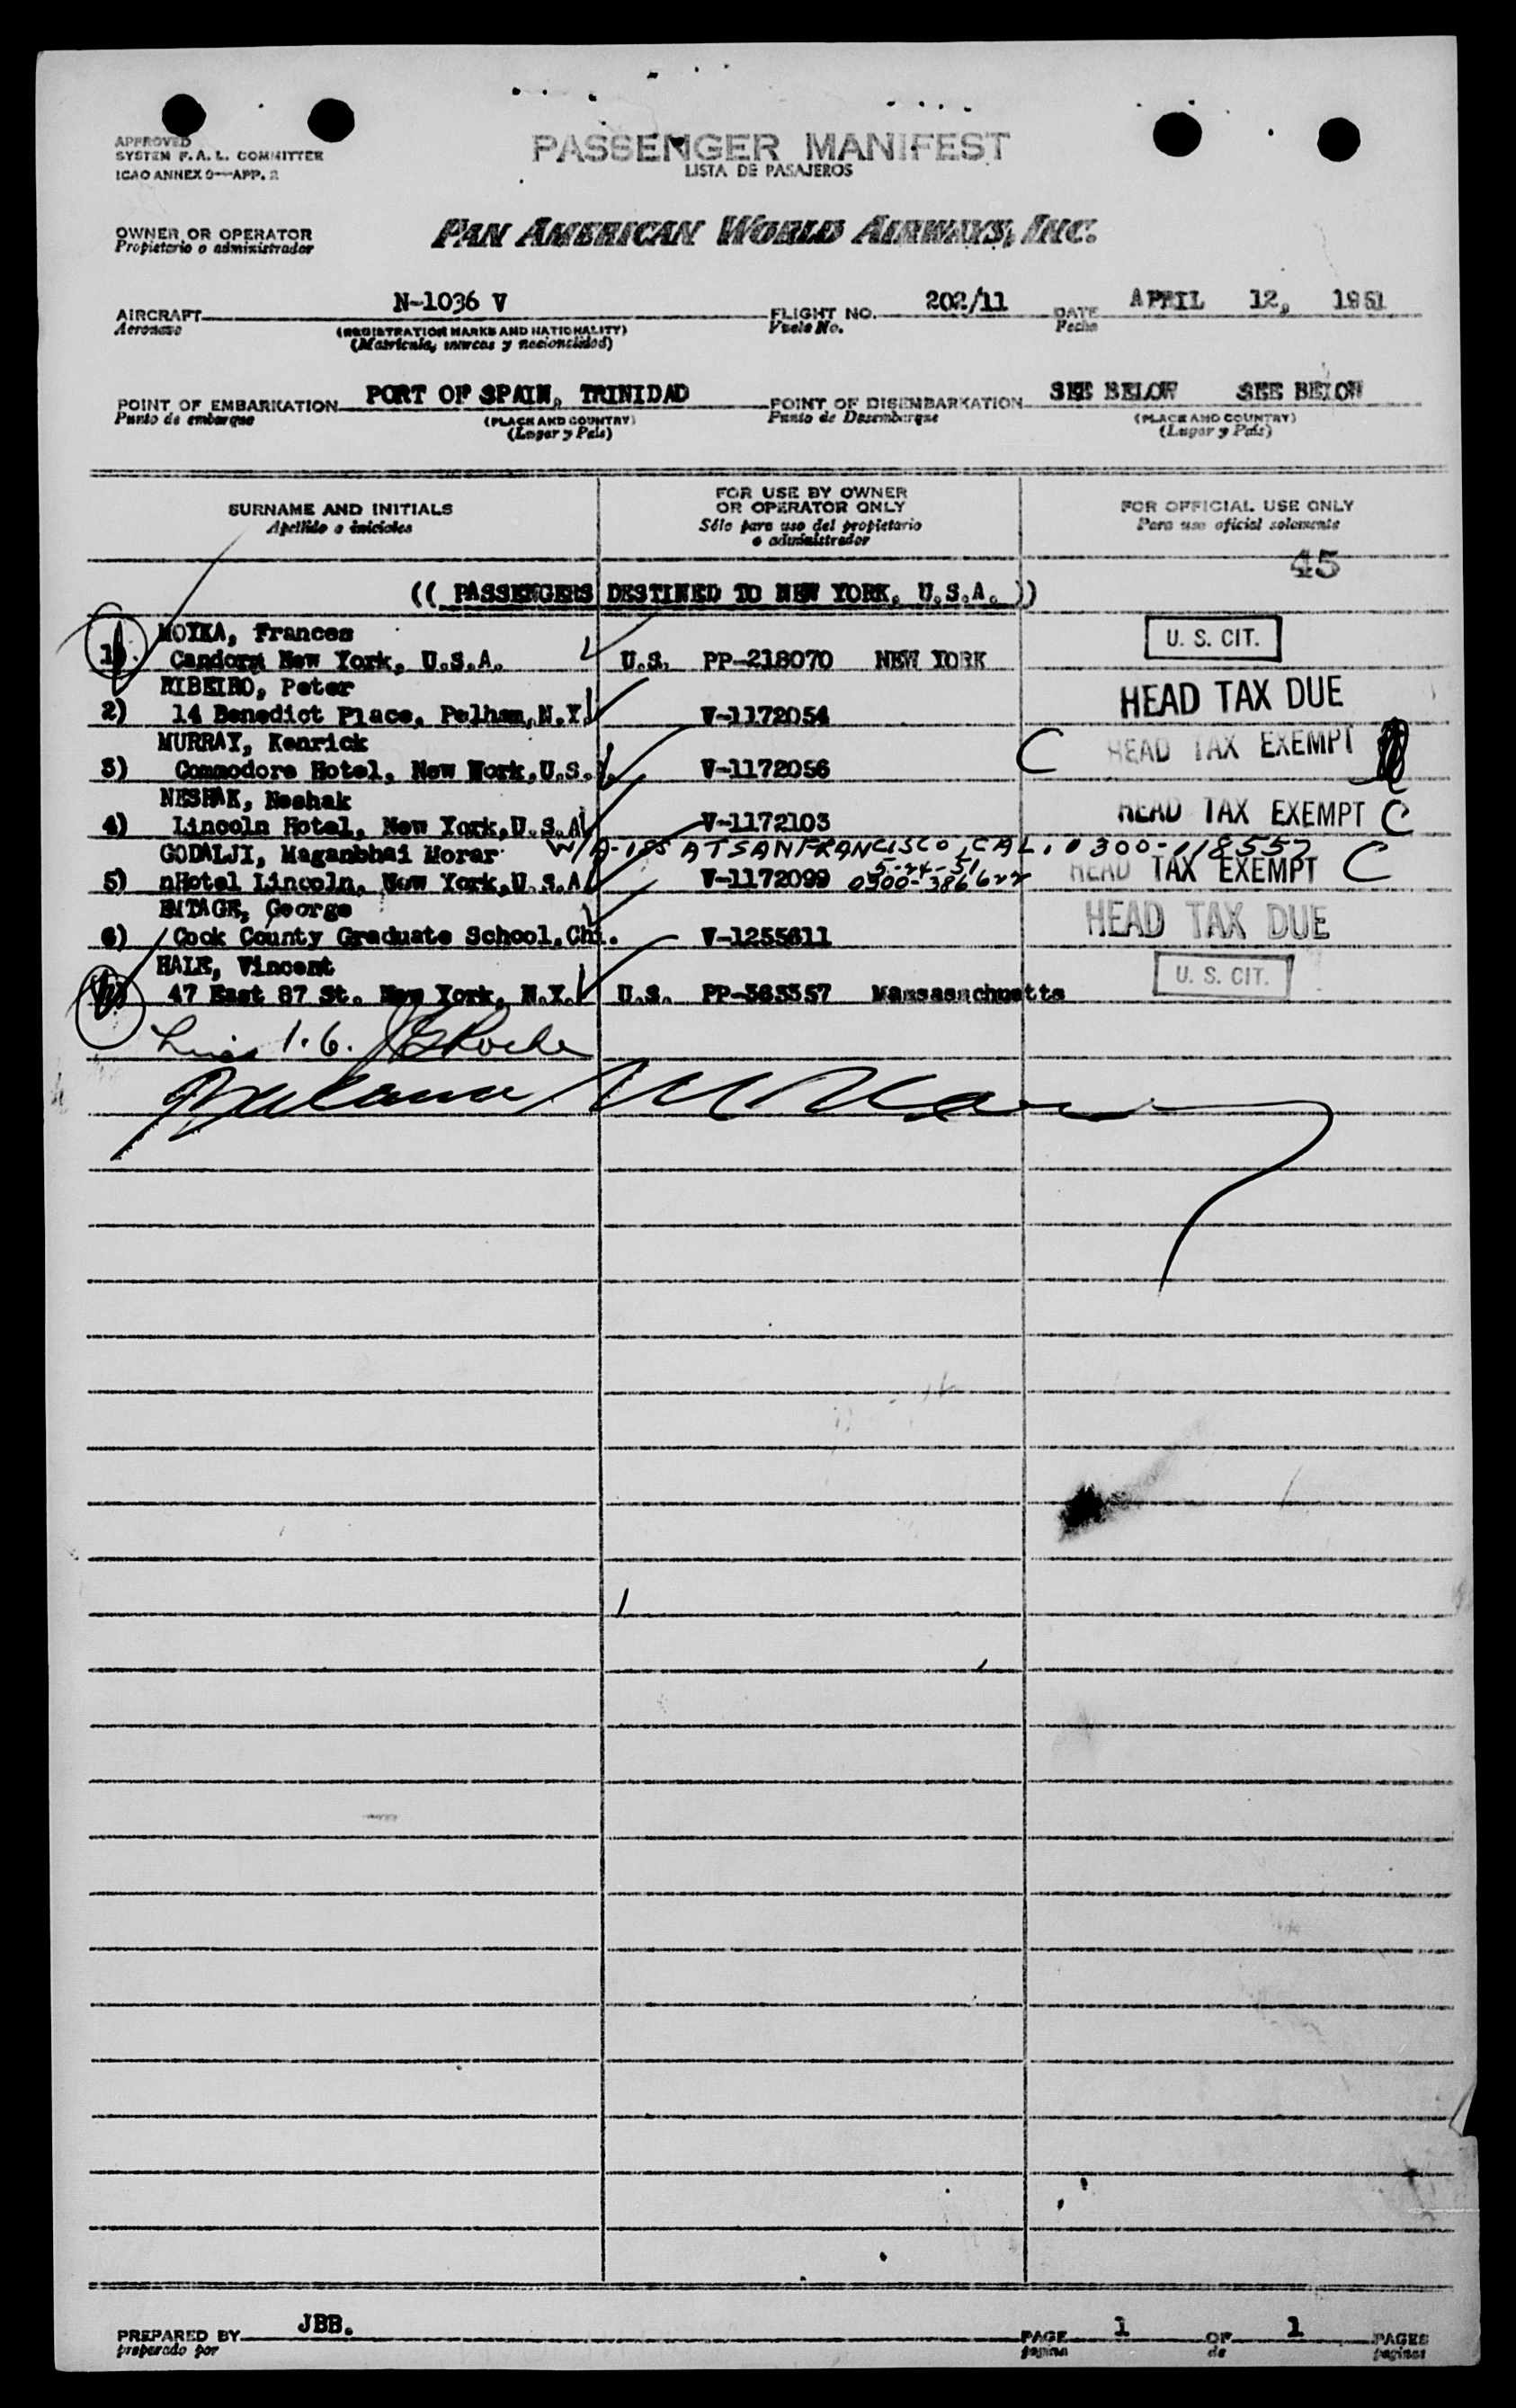 APPROVED
SYSTEM F. A. L. COMMITTEE
ICAO ANNEX 9—APP. 2
PASSENGER MANIFEST
LISTA DE PASAJEROS
OWNER OR OPERATOR
Propietario o administrador
PAN AMERICAN WORLD AIRWAYS, INC.
AIRCRAFT N-1036 V FLIGHT NO. 202/11 DATE APRIL 12, 1951
Aeronave (REGISTRATION MARKS AND NATIONALITY) Vuelo No. Fecha
(Matrícula, marcas y nacionalidad)
POINT OF EMBARKATION PORT OF SPAIN, TRINIDAD POINT OF DISEMBARKATION SEE BELOW SEE BELOW
Punto de embarque (PLACE AND COUNTRY) Punto de Desembarque (PLACE AND COUNTRY)
(Lugar y País) (Lugar y País)
SURNAME AND INITIALS FOR USE BY OWNER OR OPERATOR ONLY FOR OFFICIAL USE ONLY
Apellido e iniciales Sólo para uso del propietario o administrador Para uso oficial solamente
45
(( PASSENGERS DESTINED TO NEW YORK, U.S.A. ))
MOYKA, Frances U. S. CIT.
1) Candorm New York, U.S.A. U.S. PP-218070 NEW YORK
RIBEIRO, Peter HEAD TAX DUE
2) 14 Benedict Place, Pelham, N.Y. V-1172054
MURRAY, Kenrick C HEAD TAX EXEMPT
3) Commodore Hotel, New York, U.S. V-1172056
NESHAK, Neshak HEAD TAX EXEMPT C
4) Lincoln Hotel, New York, U.S.A V-1172103
W/A-185 AT SAN FRANCISCO, CAL. 0300-118557
GODALJI, Maganbhai Morar 5-24-51 HEAD TAX EXEMPT C
5) nHotel Lincoln, New York, U.S.A V-1172099 0300-386622
EMTAGE, George HEAD TAX DUE
6) Cook County Graduate School, Chi. V-1255611
HALE, Vincent U. S. CIT.
47 East 87 St. New York, N.Y. U.S. PP-363357 Massasachuetts
1.6.
PREPARED BY JBB. PAGE 1 OF 1 PAGES
preparado por pagina de paginas